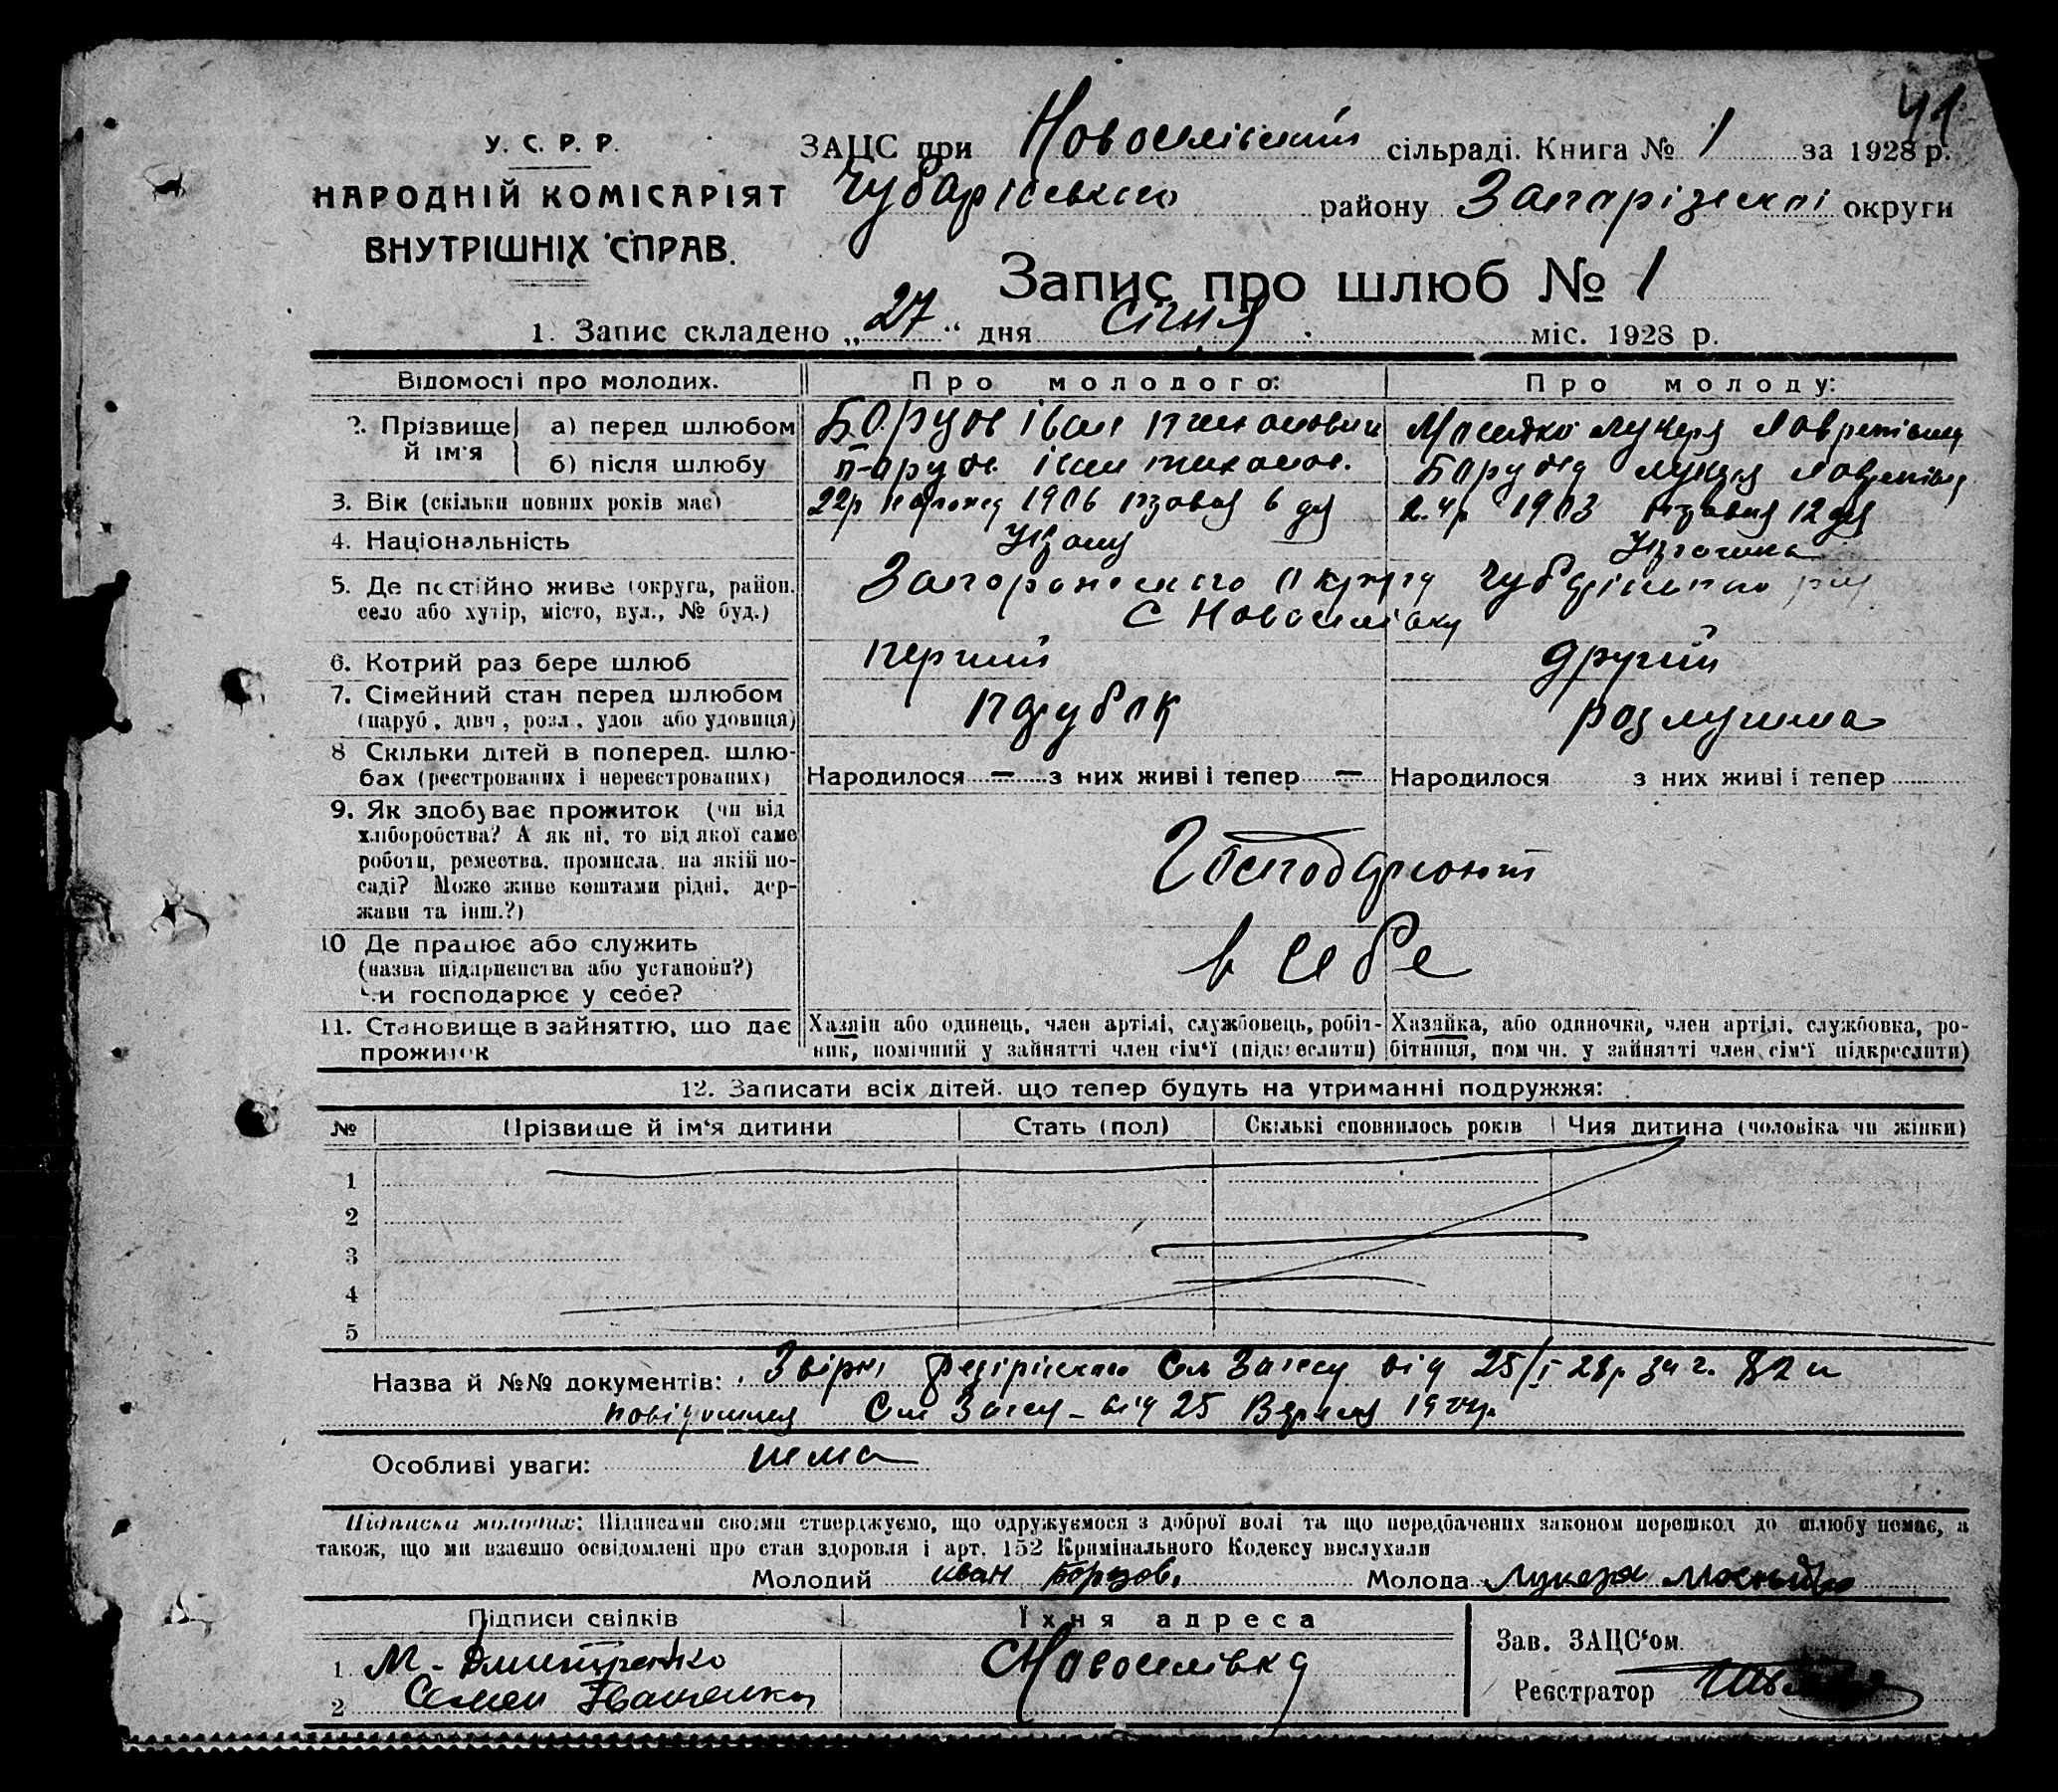 41
У. С. Р. Р.
НАРОДНІЙ КОМІСАРІЯТ
ВНУТРІШНІХ СПРАВ.
ЗАЦС при Новоселівській сільраді. Книга № 1 за 1928 р.
Чубарівського району Запорізької округи
Запис про шлюб № 1
1. Запис складено „27“ дня січня міс. 1928 р.
Відомості про молодих. Про молодого: Про молоду:
2. Прізвище й ім'я а) перед шлюбом Іван Лукеря
б) після шлюбу Іван
3. Вік (скільки повних років має) 22р 1906 6 дня 1903 12 дня
4. Національність
5. Де постійно живе (округа, район, Чубарівського
село або хутір, місто, вул., № буд.) С Новоселівка
6. Котрий раз бере шлюб перший другий
7. Сімейний стан перед шлюбом парубок
(паруб., дівч., розл., удов. або удовиця)
8 Скільки дітей в поперед. шлю-
бах (реєстрованих і нереєстрованих) Народилося — з них живі і тепер — Народилося з них живі і тепер
9. Як здобуває прожиток (чи від
хліборобства? А як ні, то від якої саме
роботи, ремества, промисла, на якій по-
саді? Може живе коштами рідні, дер-
жави та інш.?)
Господарюют
10 Де працює або служить
(назва підприємства або установи?)
Чи господарює у себе?
в себе
11. Становище в зайняттю, що дає
прожиток
Хазяїн або одинець, член артілі, службовець, робіт-
ник, помічний у зайнятті член сім'ї (підкреслити)
Хазяйка, або одиночка, член артілі, службовка, ро-
бітниця, помічн. у зайнятті член сім'ї підкреслити)
12. Записати всіх дітей, що тепер будуть на утриманні подружжя:
№ Прізвище й ім'я дитини Стать (пол) Скількі сповнилось років Чия дитина (чоловіка чи жінки)
1
2
3
4
5
Назва й №№ документів: Загсу від 25/I 28р
Загсу – від 25 Вересня
Особливі уваги: нема
Підписка молодих: Підписами своїми стверджуємо, що одружуємося з доброї волі та що передбачених законом перешкод до шлюбу немає, а
також, що ми взаємно освідомлені про стан здоровля і арт. 152 Кримінального Кодексу вислухали
Молодий иван Молода Лукеря
Підписи свідків Їхня адреса
1 М. Дмитренко С Новоселівка
2 Семен Іваненко
Зав. ЗАЦС'ом
Реєстратор